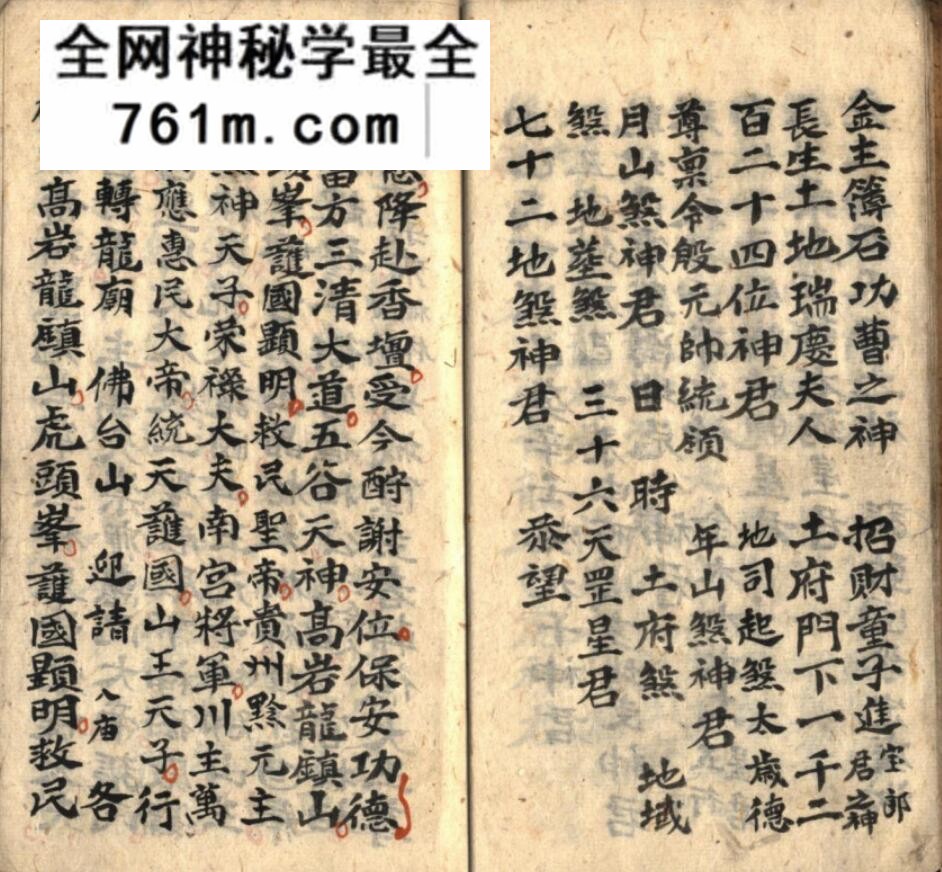 全网神秘学最全
761m.com
金主簿石功曹之神 招財童子進宝郎君之神
長生土地瑞慶夫人 土府門下一千二
百二十四位神君 地司起煞太歲德
尊稟令殷元帥統領 年山煞神君
月山煞神君 日 時 土府煞 地域
煞 地墓煞 三十六天罡星君
七十二地煞神君 恭望
降赴香壇受今酧謝安位保安功德
方三清大道五谷天神高岩龍鎮山
峯護國顯明救民聖帝貴州黔元主
神天子荣祿大夫南宮將軍川主萬
應惠民大帝統天護國山王天子行
轉龍廟佛台山 迎請八庙各
高岩龍鎮山虎頭峯護國顯明救民